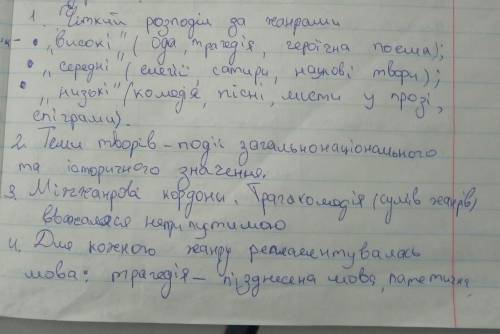 1. Чіткий розподіл за жанрами
• „високі" (ода, трагедія, героїчна поема);
• „середні" (елегії, сатири, наукові твори);
• „низькі" (комодія, пісні, листи у прозі,
епіграми).
2. Теми творів – події загальнонаціонального
та історичного значення.
3. Міжжанрові кордони. Трагакомодія (суміш жанрів)
вважалася неприпутимою
4. Для кожного жанру регламентувалась
мова: трагедія – піднесена мова, патетична